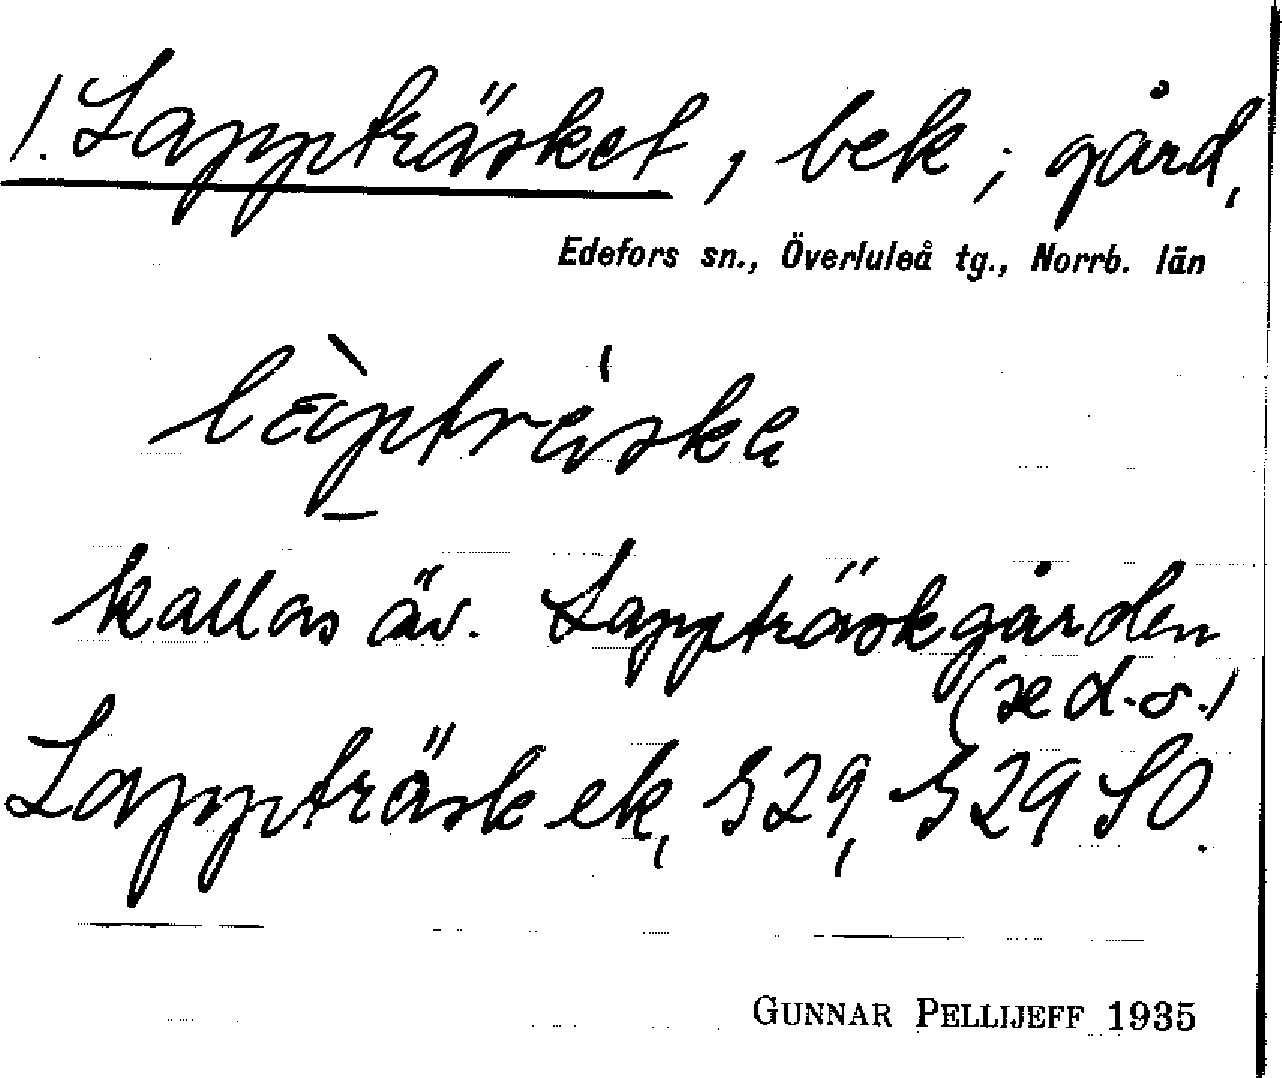 1. Lappträsket, bek; gård,
Edefors sn., Överluleå tg., Norrb. län
kallas äv. Lappträskgården
(se d. o.)
Lappträsk ek, 529, 529 SO.
GUNNAR PELLIJEFF 1935